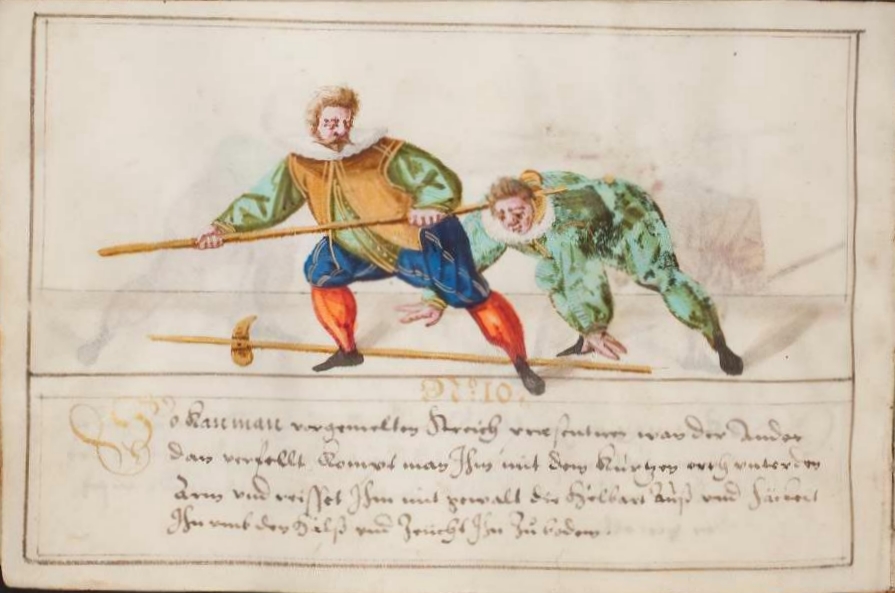 N° 10.
So kan man vorgemelten Streich verseturen wan der Ander
dan verfellt kompt man Ihm mit dem kurtzen orth unter den
Arm vnd reisset Ihm mit gewalt die Helbart Auß vnd
Ihn vmb den Halß vnd Zeücht Ihn Zu boden.